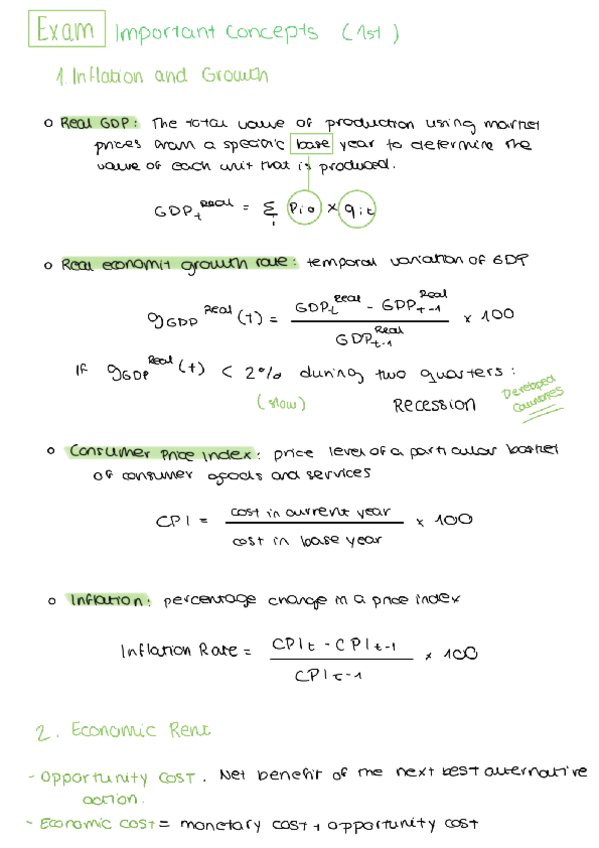 Exam Important Concepts (1st)
1. Inflation and Growth
Real GDP: The total value of production using market
prices from a specific base year to determine the
value of each unit that is produced.
GDP_t^Real = Σ_i P_i0 × q_it
Real economic growth rate: temporal variation of GDP
g_GDP^Real (t) = (GDP_t^Real - GDP_t-1^Real) / GDP_t-1^Real × 100
If g_GDP^Real (t) < 2% during two quarters:
(slow) RECESSION Developed Countries
Consumer Price Index: price level of a particular basket
of consumer goods and services
CPI = cost in current year / cost in base year × 100
Inflation: percentage change in a price index
Inflation Rate = (CPI_t - CPI_t-1) / CPI_t-1 × 100
2. Economic Rent
- Opportunity cost. Net benefit of the next best alternative
action.
- Economic cost = monetary cost + opportunity cost